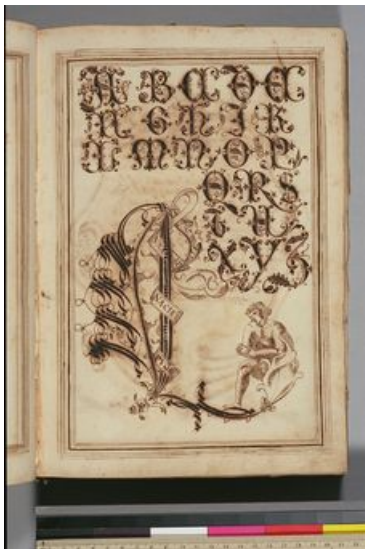 A B C D E
F G H I K
L M N O P
Q R S
T U
X Y Z